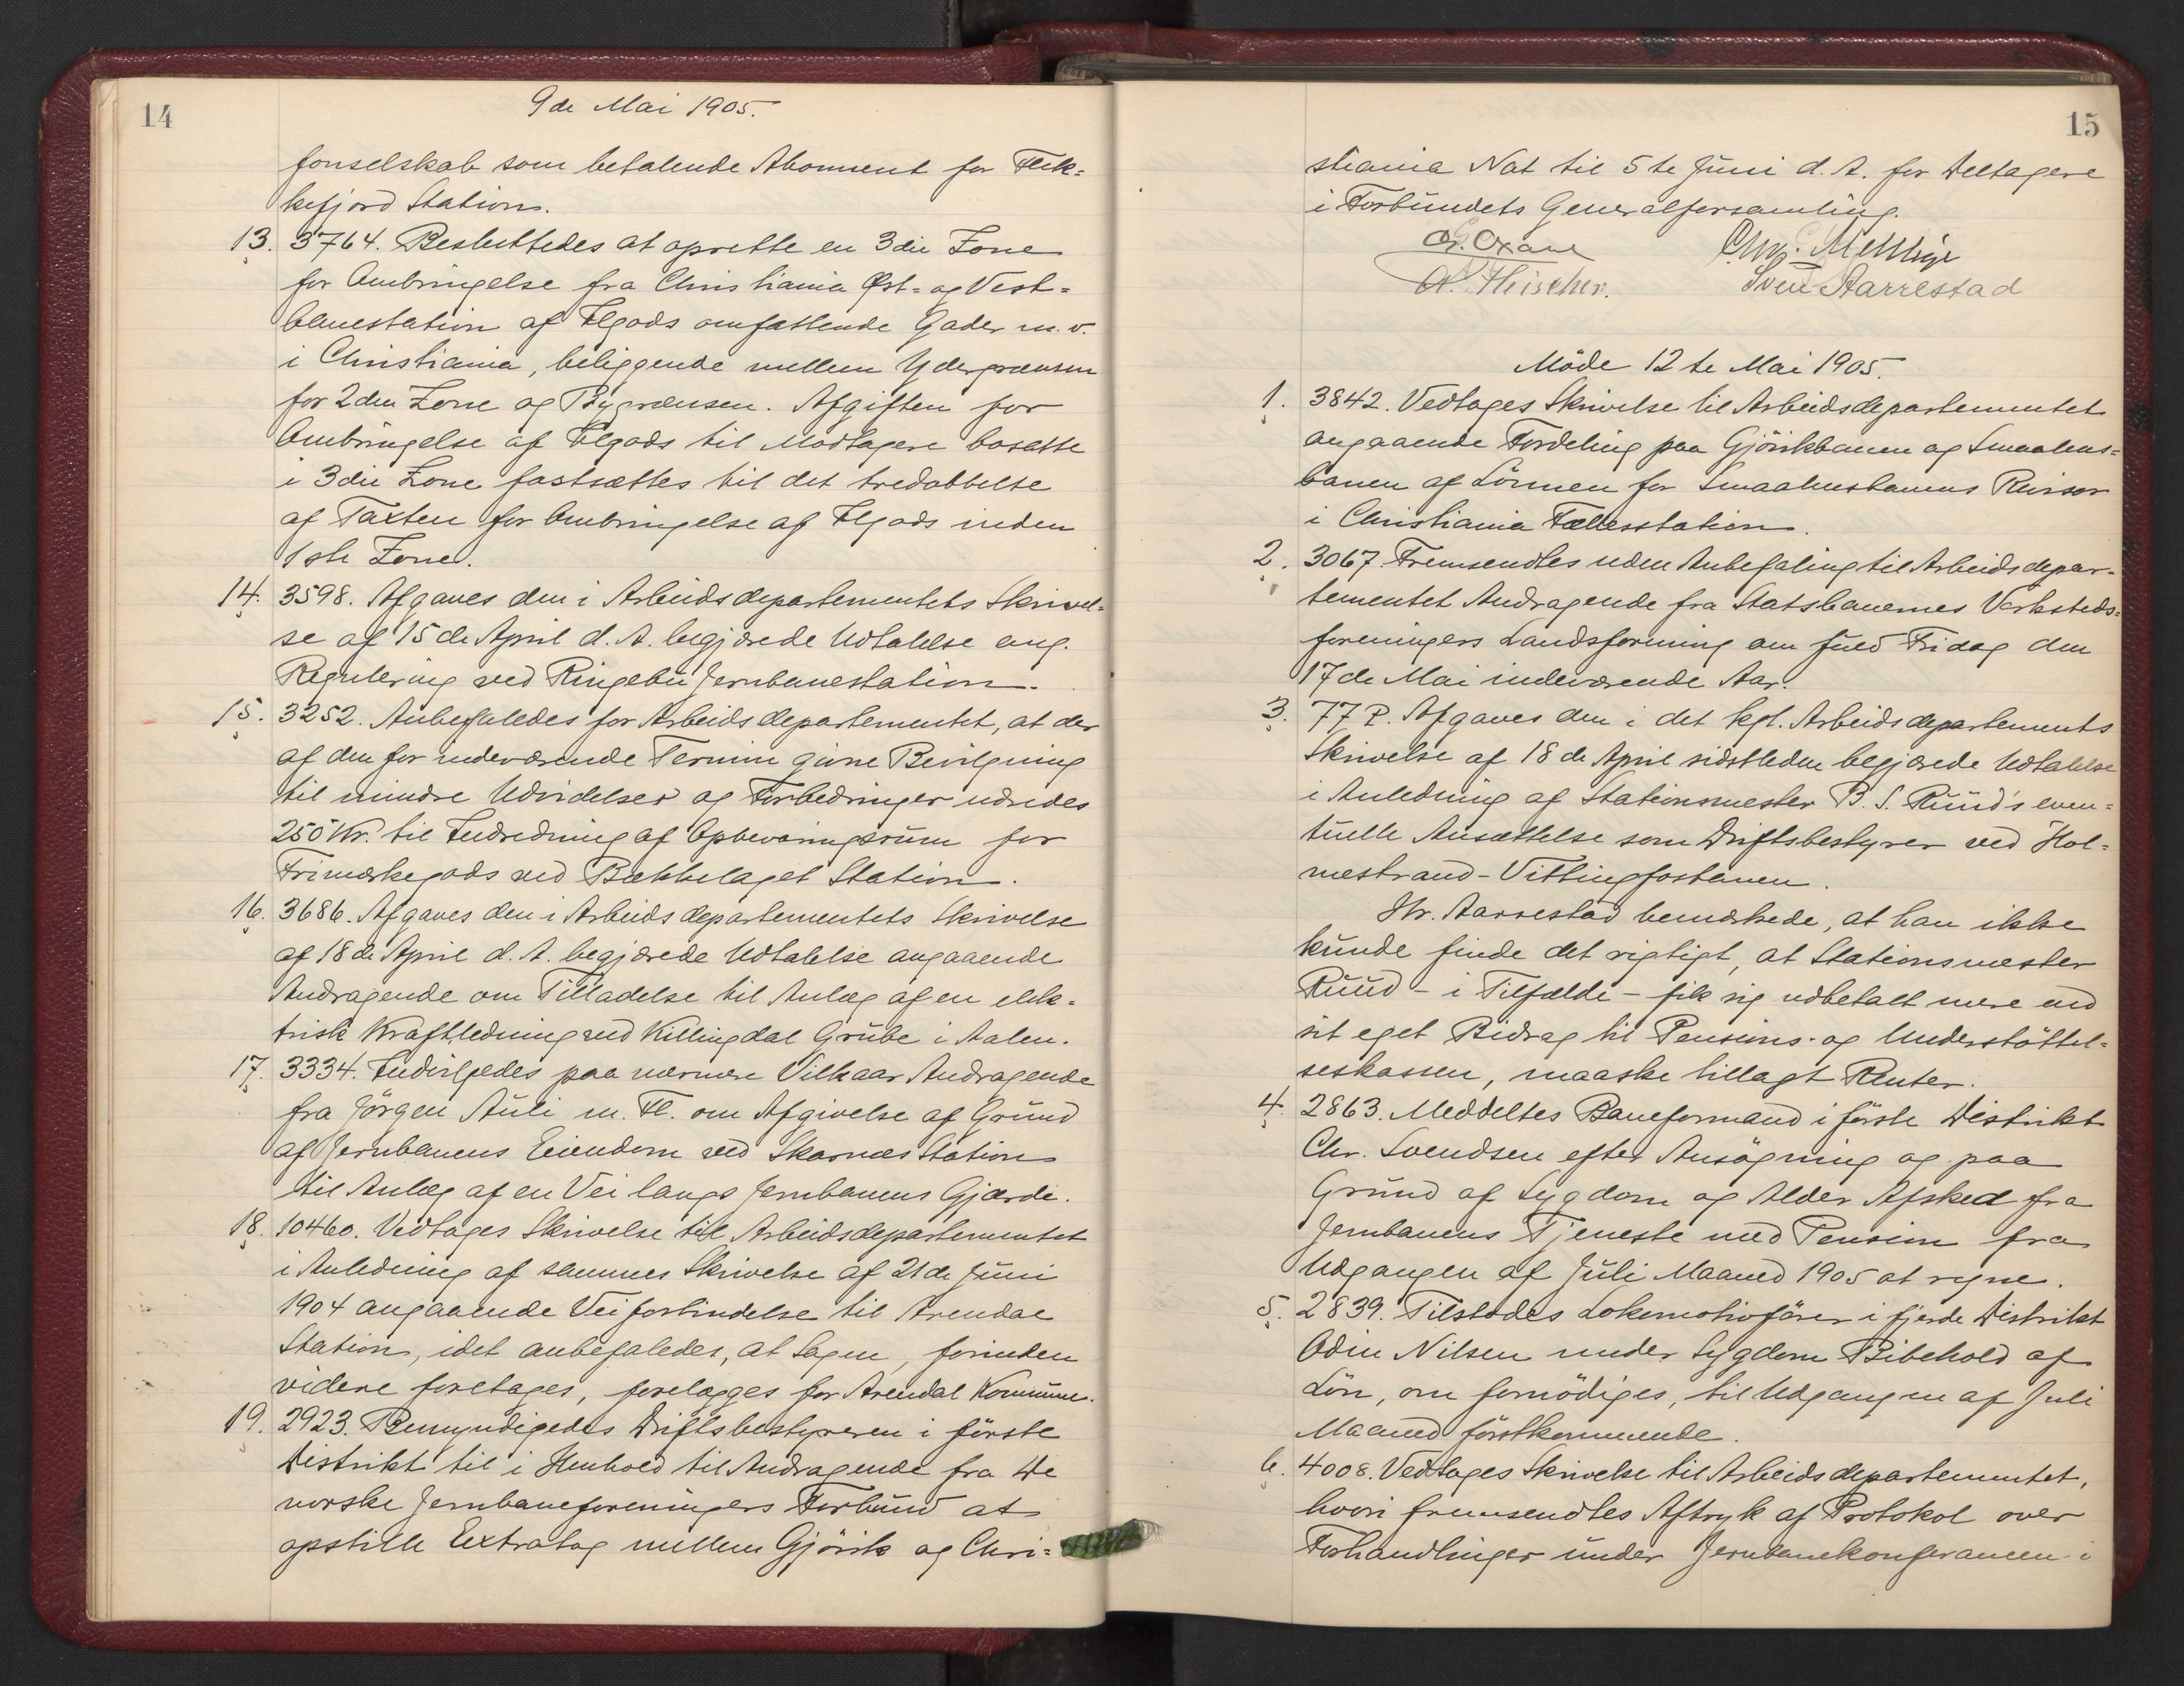 14
9de Mai 1905.
fonselskab som betalende Abonnent for Flek-
kefjord Station.
13. 3764. Besluttedes at oprette en 3die Zone
for Ombringelse fra Christiania Øst- og Vest-
banestation af Ilgods omfattende Gader m. v.
i Christiania, beliggende mellem Ydergrænsen
for 2den Zone og Bygrænsen. Afgiften for
Ombringelse af Ilgods til Modtagere bosatte
i 3die Zone fastsættes til det tredobbelte
af Taxten for Ombringelse af Ilgods inden
1ste Zone.
14. 3598. Afgaves den i Arbeidsdepartementets Skrivel-
se af 15de April d. A. begjærede Udtalelse ang.
Regulering ved Ringebu Jernbanestation.
15. 3252. Anbefaledes for Arbeidsdepartementet, at der
af den for indeværende Termin givne Bevilgning
til mindre Udvidelser og Forbedringer udredes
250 Kr. til Indredning af Opbevaringsrum for
Frimærkegods ved Bækkelaget Station.
16. 3686. Afgaves den i Arbeidsdepartementets Skrivelse
af 18de April d. A. begjærede Udtalelse angaaende
Andragende om Tilladelse til Anlæg af en elek-
trisk Kraftledning ved Killingdal Grube i Aalen.
17. 3334. Indvilgedes paa nærmere Vilkaar Andragende
fra Jörgen Auli m. Fl. om Afgivelse af Grund
af Jernbanens Eiendom ved Skarnæs Station
til Anlæg af en Vei langs Jernbanens Gjærde.
18. 10460. Vedtoges Skrivelse til Arbeidsdepartementet
i Anledning af sammes Skrivelse af 21de Juni
1904 angaaende Veiforbindelse til Arendal
Station, idet anbefaledes, at Sagen, forinden
videre foretages, forelægges for Arendal Kommune.
19. 2923. Bemyndigedes Driftsbestyreren i förste
Distrikt til i Henhold til Andragende fra De
norske Jernbaneforeningers Forbund at
opstille Extratog mellem Gjövik og Chri-
15
stiania Nat til 5te Juni d. A. for Deltagere
i Forbundets Generalforsamling.
Chr. Mellbye
Sven Aarrestad
Möde 12te Mai 1905.
1. 3842. Vedtoges Skrivelse til Arbeidsdepartementet
angaaende Fordeling paa Gjövikbanen og Smaalens-
banen af Lönnen for Smaalensbanens Revisor
i Christiania Fællesstation.
2. 3067. Fremsendtes uden Anbefaling til Arbeidsdepar-
tementet Andragende fra Statsbanernes Verksteds-
foreningers Landsforening om fuld Fridag den
17de Mai indeværende Aar.
3. 77 P. Afgaves den i det kgl. Arbeidsdepartements
Skrivelse af 18de April sidstleden begjærede Udtalelse
i Anledning af Stationsmester B. S. Ruud's even-
tuelle Ansættelse som Driftsbestyrer ved Hol-
mestrand-Vittingfosbanen.
Hr. Aarrestad bemærkede, at han ikke
kunde finde det rigtigt, at Stationsmester
Ruud - i Tilfælde - fik sig udbetalt mere end
sit eget Bidrag til Pensions- og Understöttel-
seskassen, maaske tillagt Renter.
4. 2863. Meddeltes Baneformand i förste Distrikt
Chr. Svendsen efter Ansögning og paa
Grund af Sygdom og Alder Afsked fra
Jernbanens Tjeneste med Pension fra
Udgangen af Juli Maaned 1905 at regne.
5. 2839. Tilstodes Lokomotivförer i fjerde Distrikt
Odin Nilsen under Sygdom Bibehold af
Lön, om fornödiges, til Udgangen af Juli
Maaned förstkommende.
6. 4008. Vedtoges Skrivelse til Arbeidsdepartementet,
hvori fremsendtes Aftryk af Protokol over
Forhandlinger under Jernbanekonferancen i